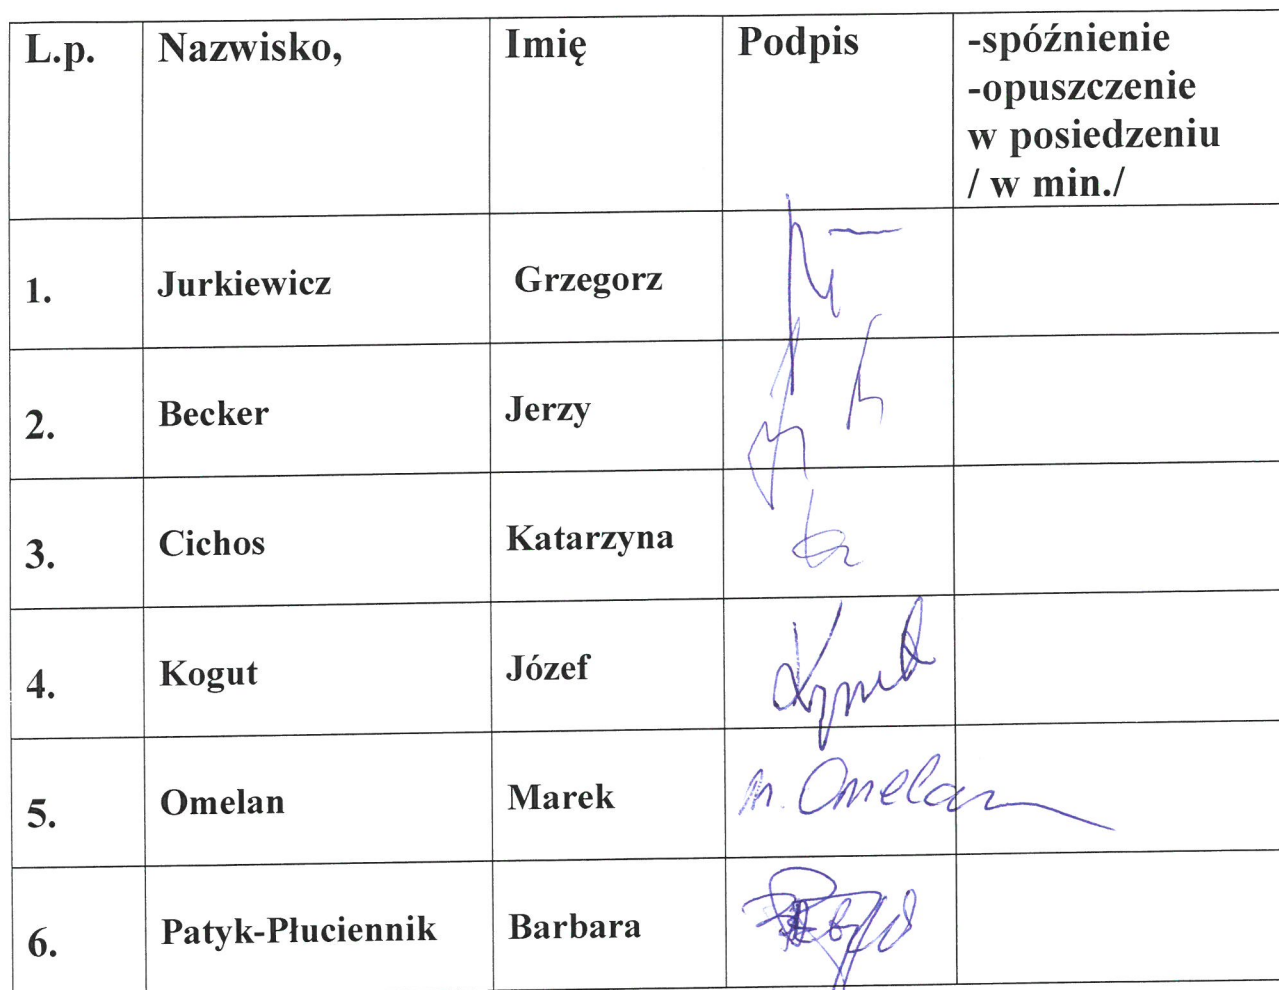 L.p. Nazwisko, Imię Podpis -spóźnienie
-opuszczenie
w posiedzeniu
/ w min./
1. Jurkiewicz Grzegorz
2. Becker Jerzy
3. Cichos Katarzyna
4. Kogut Józef
5. Omelan Marek M. Omelan
6. Patyk-Płuciennik Barbara